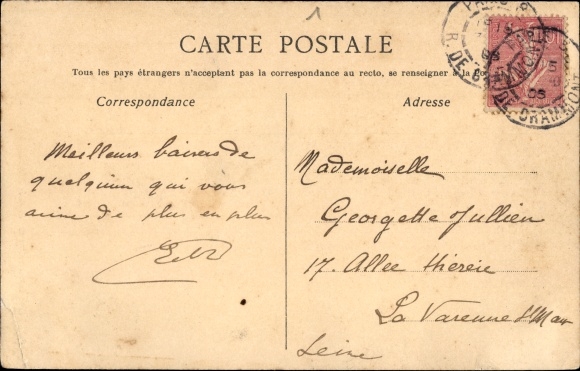 1
CARTE POSTALE
Tous les pays étrangers n'acceptent pas la correspondance au recto, se renseigner à la
Correspondance
Adresse
Meilleurs baisers de
quelqu'un qui vous
aime de plus en plus
Mademoiselle
Georgette Jullien
17. Allée
La Varenne St Maur
Seine
PARIS
R. DE GRAMMONT